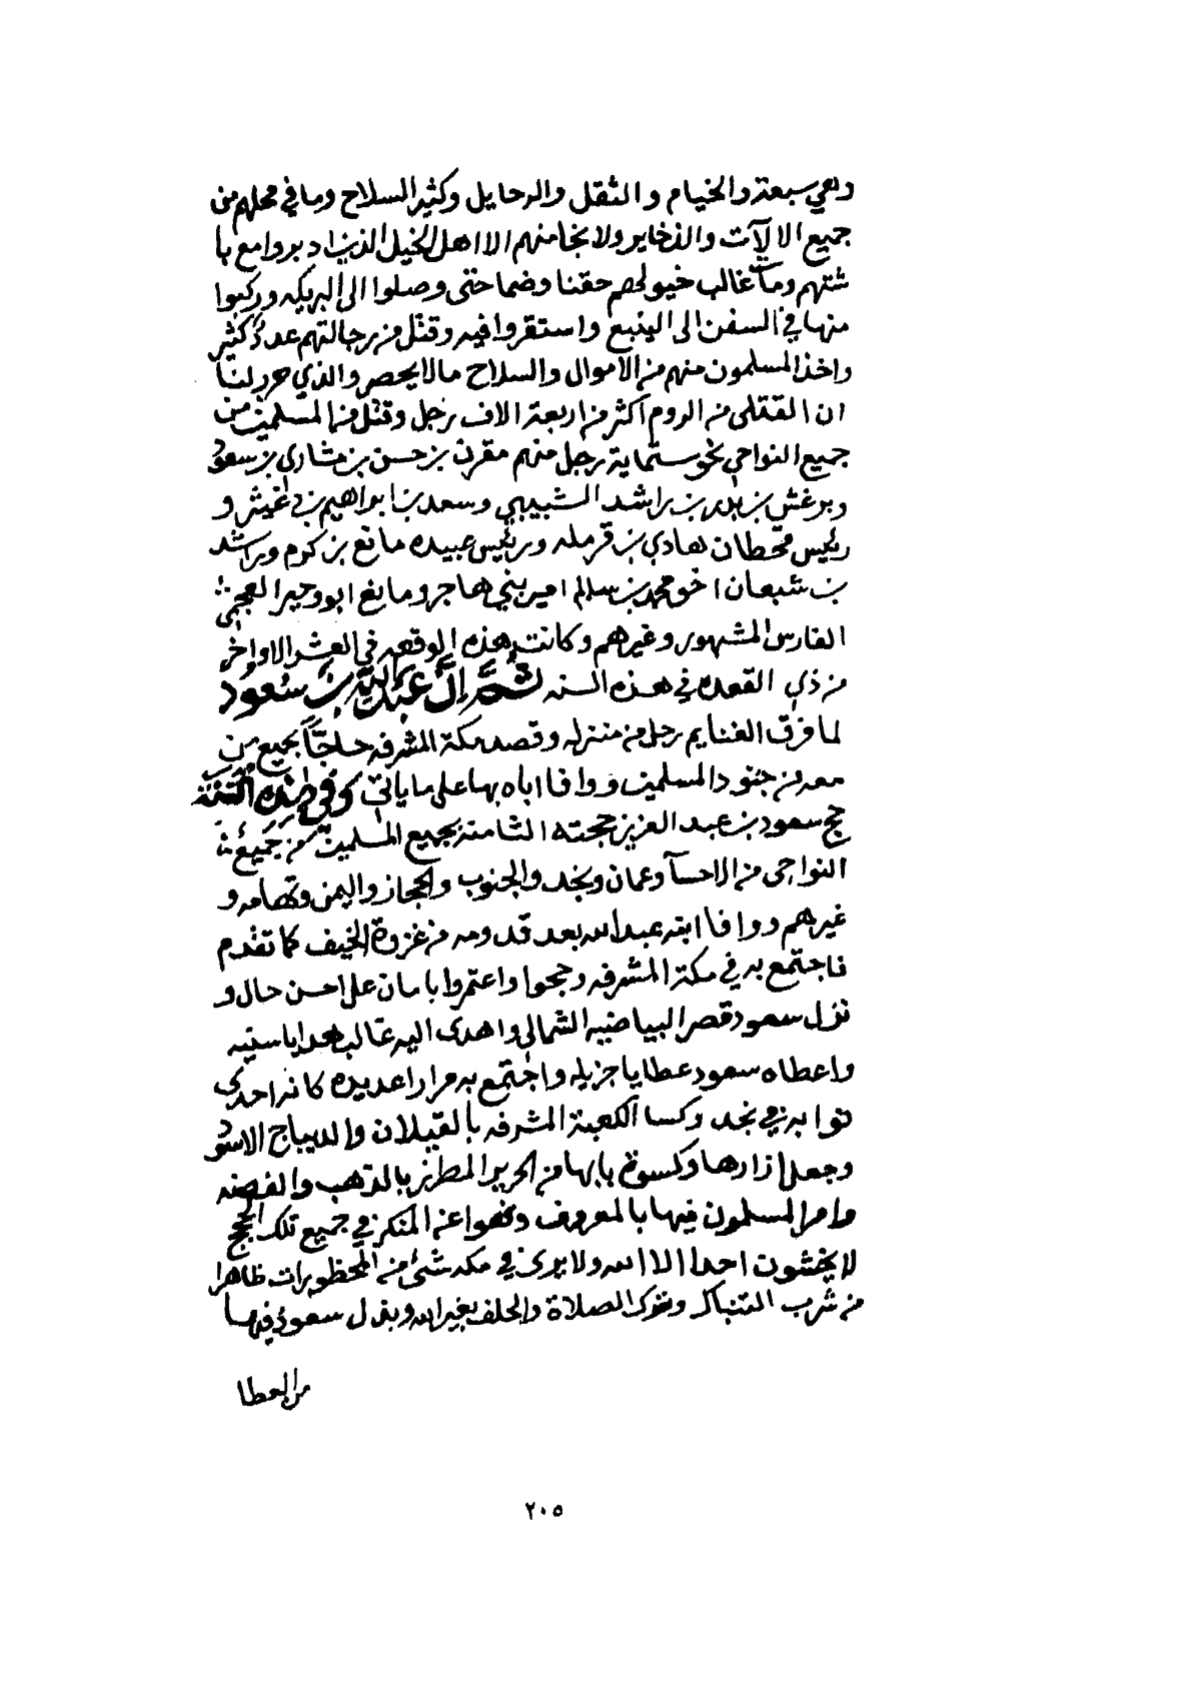 وهي سبعة والخيام والثقل والرحايل وكثير السلاح وما في محلهم من
جميع الالآت والذخاير ولا نجا منهم الا اهل الخيل الذين ادبروا مع با
شتهم ومات غالب خيولهم حقنا وضما حتى وصلوا الى البريكه وركبوا
منها في السفن الى الينبع واستقروا فيه وقتل من رجالتهم عدد كثير
واخذ المسلمون منهم من الاموال والسلاح مالا يحصر والذي حرر لنا
ان القتلى من الروم اكثر من اربعة الاف رجل وقتل من المسلمين من
جميع النواحي نحو ستماية رجل منهم مقرن بن حسن بن مشاري بن سعود
وبرغش بن بدر بن راشد الشبيبي وسعد بن ابراهيم بن دغيثر و
رئيس قحطان هادي بن قرمله ورئيس عبيده مانع بن كرم وراشد
بن شبعان اخو محمد بن سالم امير بني هاجر ومانع ابو وحير العجمي
الفارس المشهور وغيرهم وكانت هذه الوقعه في العشر الاواخر
من ذي القعده في هذه السنه ثم ان عبد الله بن سعود
لما فرق الغنايم رحل من منزله وقصد مكة المشرفه حاجّاً بجميع من
معه من جنود المسلمين ووافا اباه بها على ما ياتي وفي هذه السنة
حج سعود بن عبد العزيز حجته الثامنة بجميع المسلمين من جميع
النواحي من الاحسا وعمان ونجد والجنوب والحجاز واليمن وتهامه و
غيرهم ووافا ابنه عبد الله بعد قدومه من غزوة الخيف كما تقدم
فاجتمع به في مكة المشرفه وحجوا واعتمروا بامان على احسن حال و
نزل سعود قصر البياضيه الشمالي واهدى اليه غالب هدايا سنيه
واعطاه سعود عطايا جزيله واجتمع به مرارا عديده كانه احدى
نوابه في نجد وكسا الكعبة المشرفه بالقيلان والديباج الاسود
وجعل ازارها وكسوة بابها من الحرير المطرز بالذهب والفضه
وامر المسلمون فيها بالمعروف ونهوا عن المنكر في جميع تلك الحجج
لا يخشون احدا الا الله ولا يرى في مكه شئ من المحظورات ظاهرا
من شرب التنباك وترك الصلاة والحلف بغير الله وبذل سعود فيها
من العطا
٢٠٥